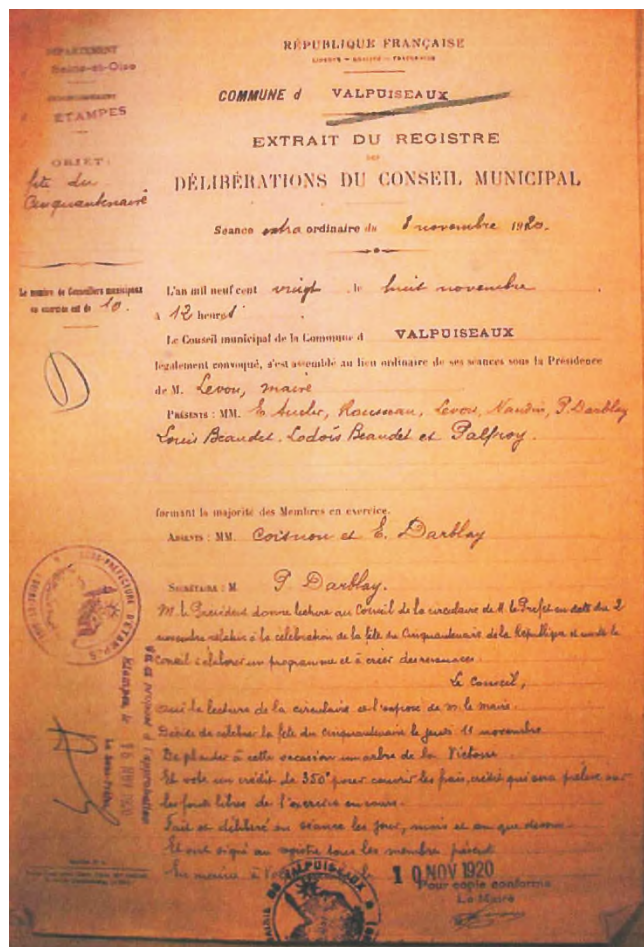 DÉPARTEMENT
Seine-et-Oise
ARRONDISSEMENT
d ETAMPES
OBJET:
fête du
Cinquantenaire
Le nombre de Conseillers municipaux
en exercice est de 10.
RÉPUBLIQUE FRANÇAISE
LIBERTÉ — ÉGALITÉ — FRATERNITÉ
COMMUNE d VALPUISEAUX
EXTRAIT DU REGISTRE
DES
DÉLIBÉRATIONS DU CONSEIL MUNICIPAL
Séance extra ordinaire du 8 novembre 1920.
L'an mil neuf cent vingt, le huit novembre
à 12 heures
Le Conseil municipal de la Commune d VALPUISEAUX
légalement convoqué, s'est assemblé au lieu ordinaire de ses séances sous la Présidence
de M. Levou, maire
PRÉSENTS : MM. E. Rousseau, Levou, Naudin, P. Darblay
Louis Beaudet, Lodoïs Beaudet et Palfroy.
formant la majorité des Membres en exercice.
ABSENTS : MM. Coisnon et E. Darblay
SECRÉTAIRE : M. P. Darblay.
M. le Président donne lecture au Conseil de la circulaire de M. le Préfet en date du 2
novembre relative à la célébration de la fête du Cinquantenaire de la République et invite le
Conseil à élaborer un programme et à créer des ressources.
Le Conseil,
ouï la lecture de la circulaire et l'exposé de M. le maire.
Décide de célébrer la fête du cinquantenaire le jeudi 11 novembre
De planter à cette occasion un arbre de la Victoire
Et vote un crédit de 350f pour couvrir les frais, crédit qui sera prélevé sur
les fonds libres de l'exercice en cours.
Fait et délibéré en séance les jour, mois et an que dessus
Et ont signé au registre tous les membres présents
En mairie à 10 NOV 1920
Pour copie conforme
Le Maire
SOUS-PRÉFECTURE D'ETAMPES
Vu et proposé à l'approbation
Etampes, le 16 NOV 1920
Le Sous-Préfet,
MAIRIE DE VALPUISEAUX